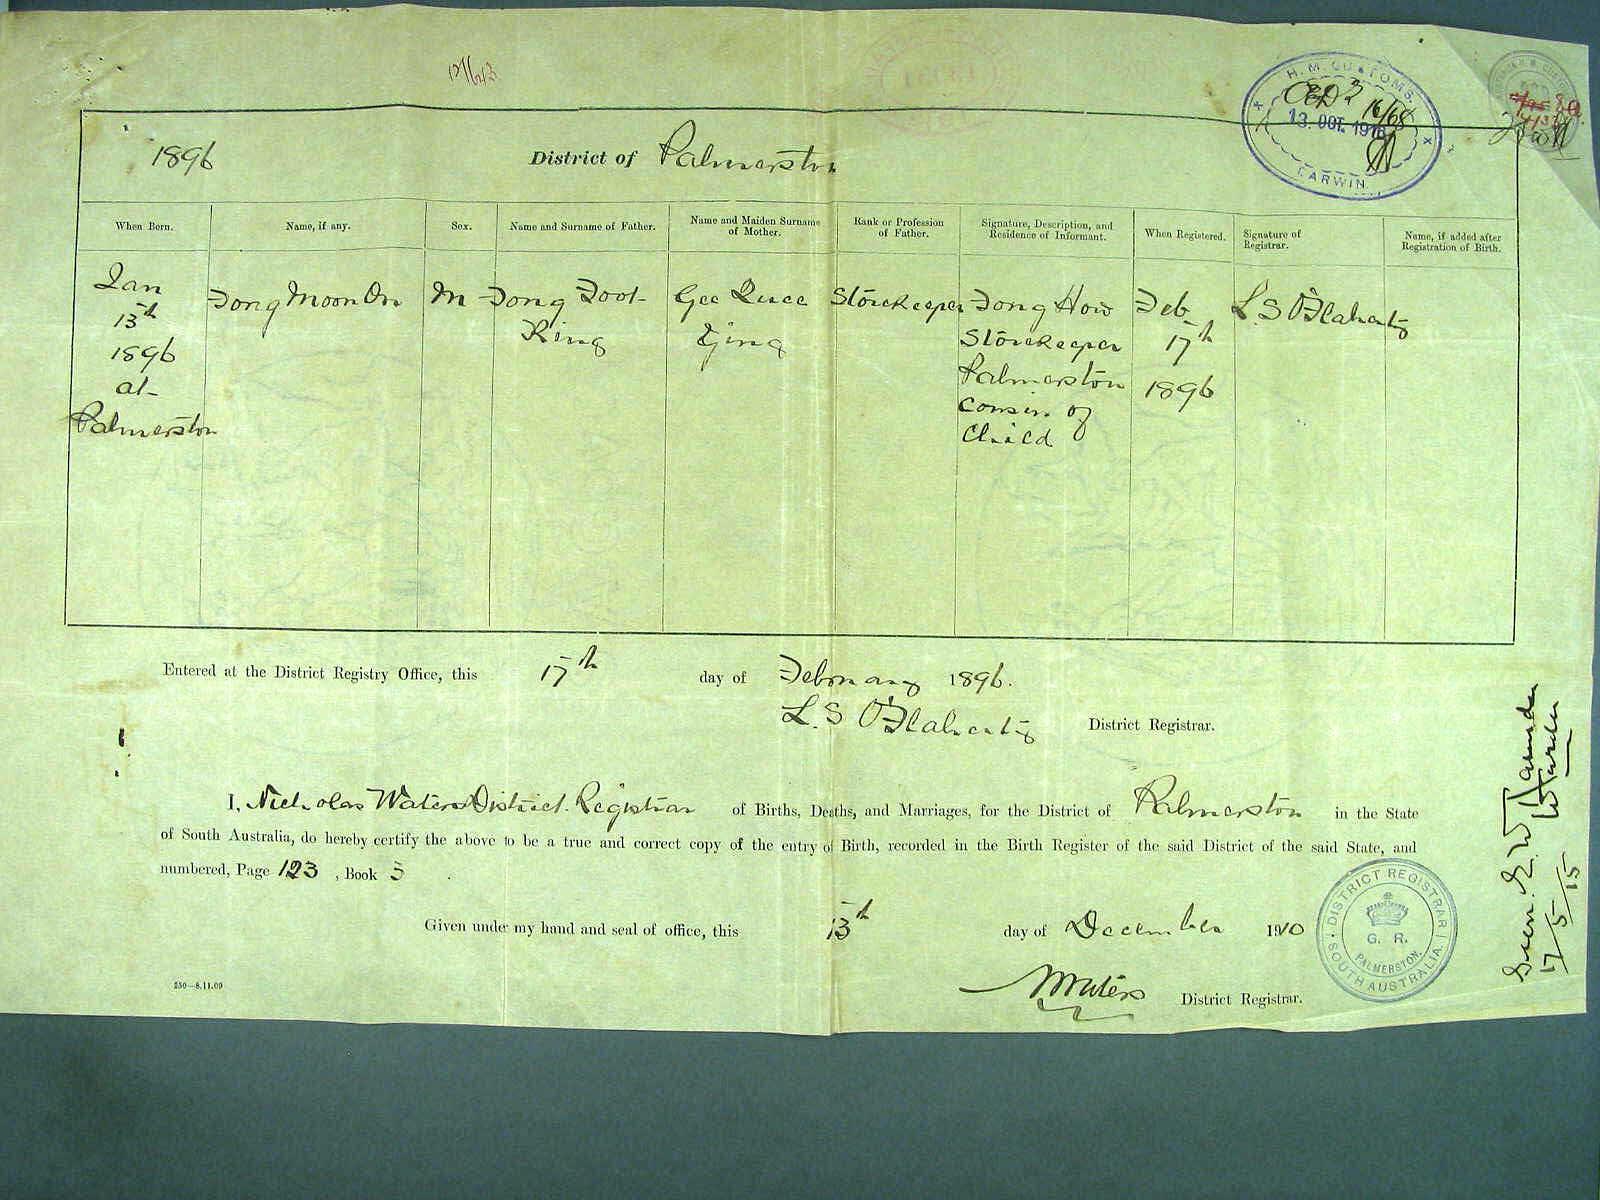 H. M. CUSTOMS.
16/68
13. OCT. 1916
DARWIN.
1896 District of Palmerston
When Born. Name, if any. Sex. Name and Surname of Father. Name and Maiden Surname of Mother. Rank or Profession of Father. Signature, Description, and Residence of Informant. When Registered. Signature of Registrar. Name, if added after Registration of Birth.
Jan Fong Moon On M Fong Foot Gee Quee Storekeeper Fong How Feb L. S O'Flaherty
13th King Ying Storekeeper 17th
1896 Palmerston 1896
at cousin of
Palmerston Child
Entered at the District Registry Office, this 17th day of February 1896.
L. S O'Flaherty District Registrar.
I, Nicholas Waters District Registrar of Births, Deaths, and Marriages, for the District of Palmerston in the State
of South Australia, do hereby certify the above to be a true and correct copy of the entry of Birth, recorded in the Birth Register of the said District of the said State, and
numbered, Page 123, Book 3.
Given under my hand and seal of office, this 13th day of December 1910
N Waters District Registrar.
250—8.11.09
DISTRICT REGISTRAR
G. R.
PALMERSTON.
SOUTH AUSTRALIA
17/5/15